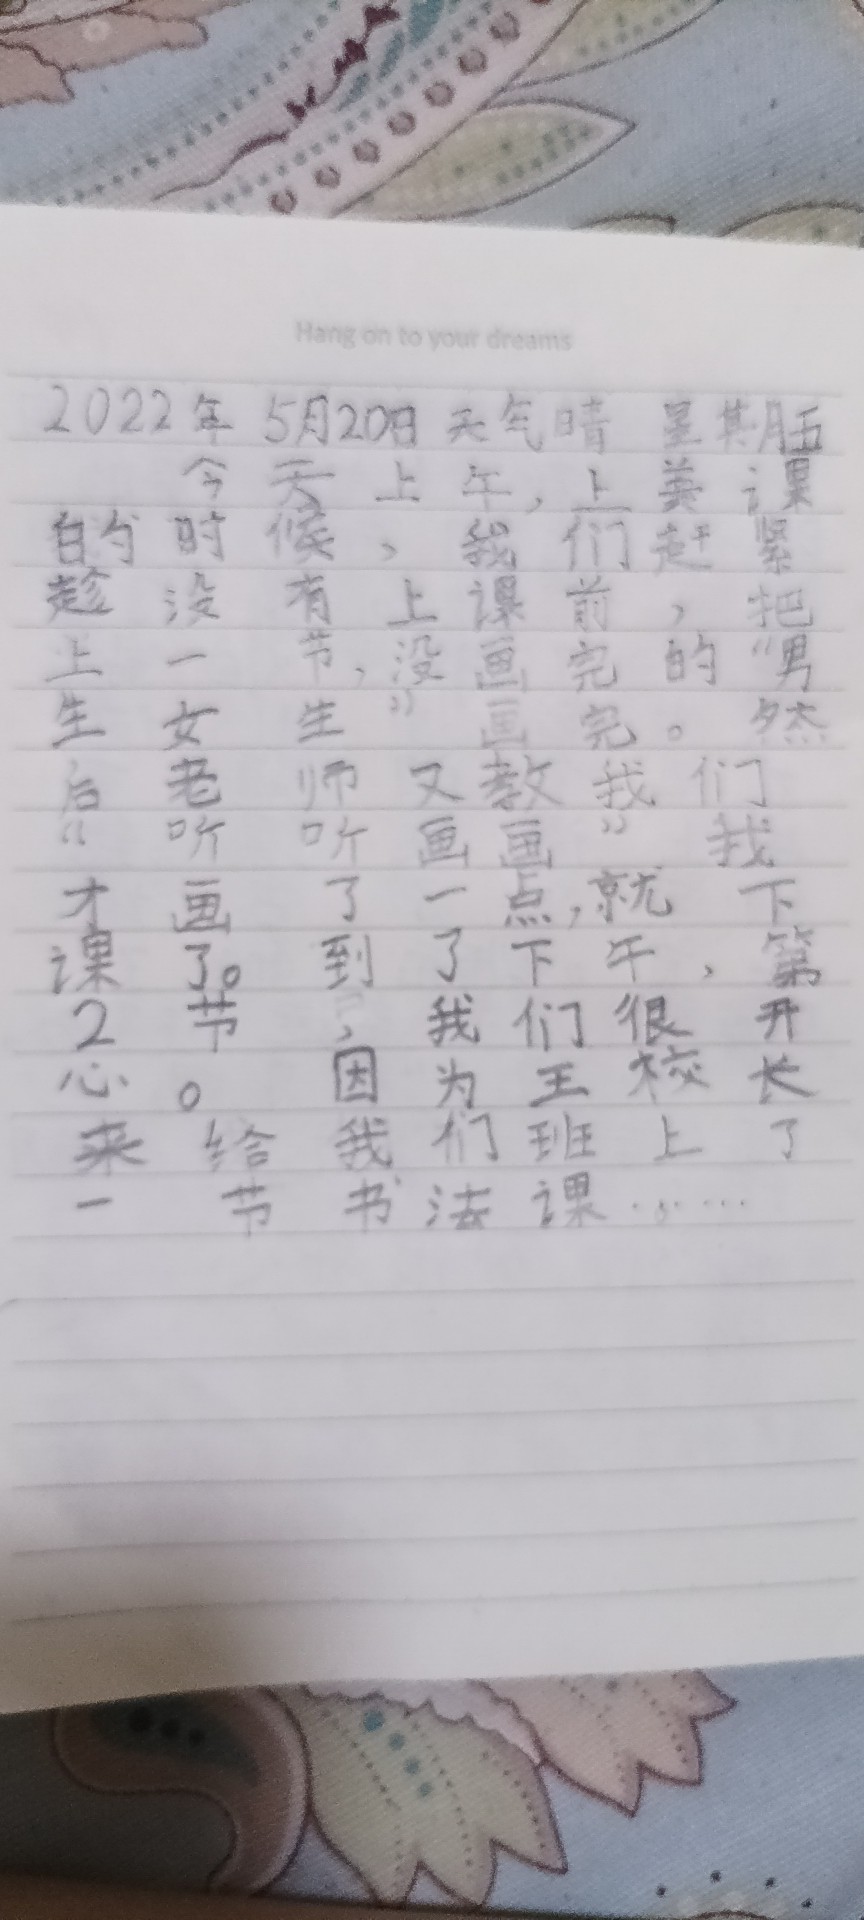 Hang on to your dreams
2022年 5月20日 天气晴 星期五
今天上午,上美课
的时候,我们赶紧
趁没有上课前,把
上一节,没画完的“男
生女生”画完。然
后老师又教我们
“听听画画”我
才画了一点,就下
课了。到了下午,第
2节,我们很开
心。因为王校长
来给我们班上了
一节书法课……